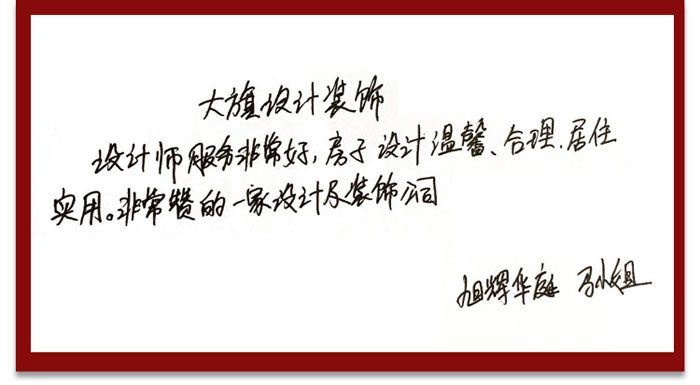 大旗设计装饰
设计师服务非常好,房子设计温馨、合理、居住
实用。非常赞的一家设计及装饰公司
旭辉华庭 小姐